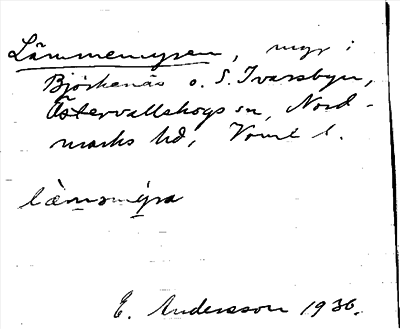 Lämmemyren, myr i
Björkenäs o. S. Ivarsbyn,
Östervallskogs sn, Nord-
marks hd, Värml l.
læ̀mǝmýra
E. Andersson 1936.